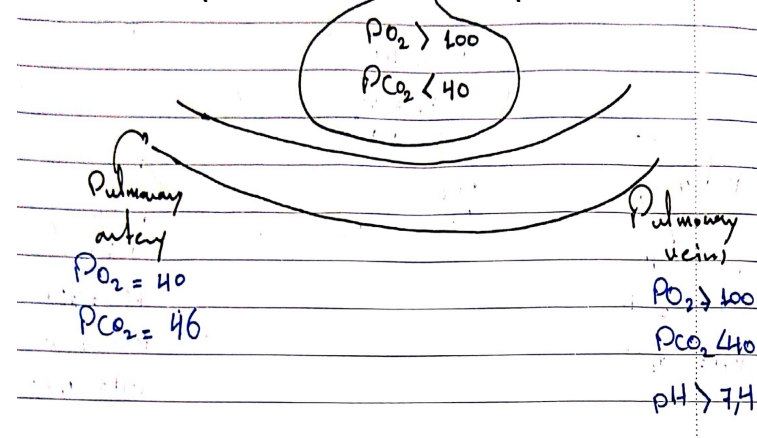 PO₂ > 100
PCO₂ < 40
Pulmonary
artery
PO₂ = 40
PCO₂ = 46
Pulmonary
veins
PO₂ > 100
PCO₂ < 40
pH > 7,4